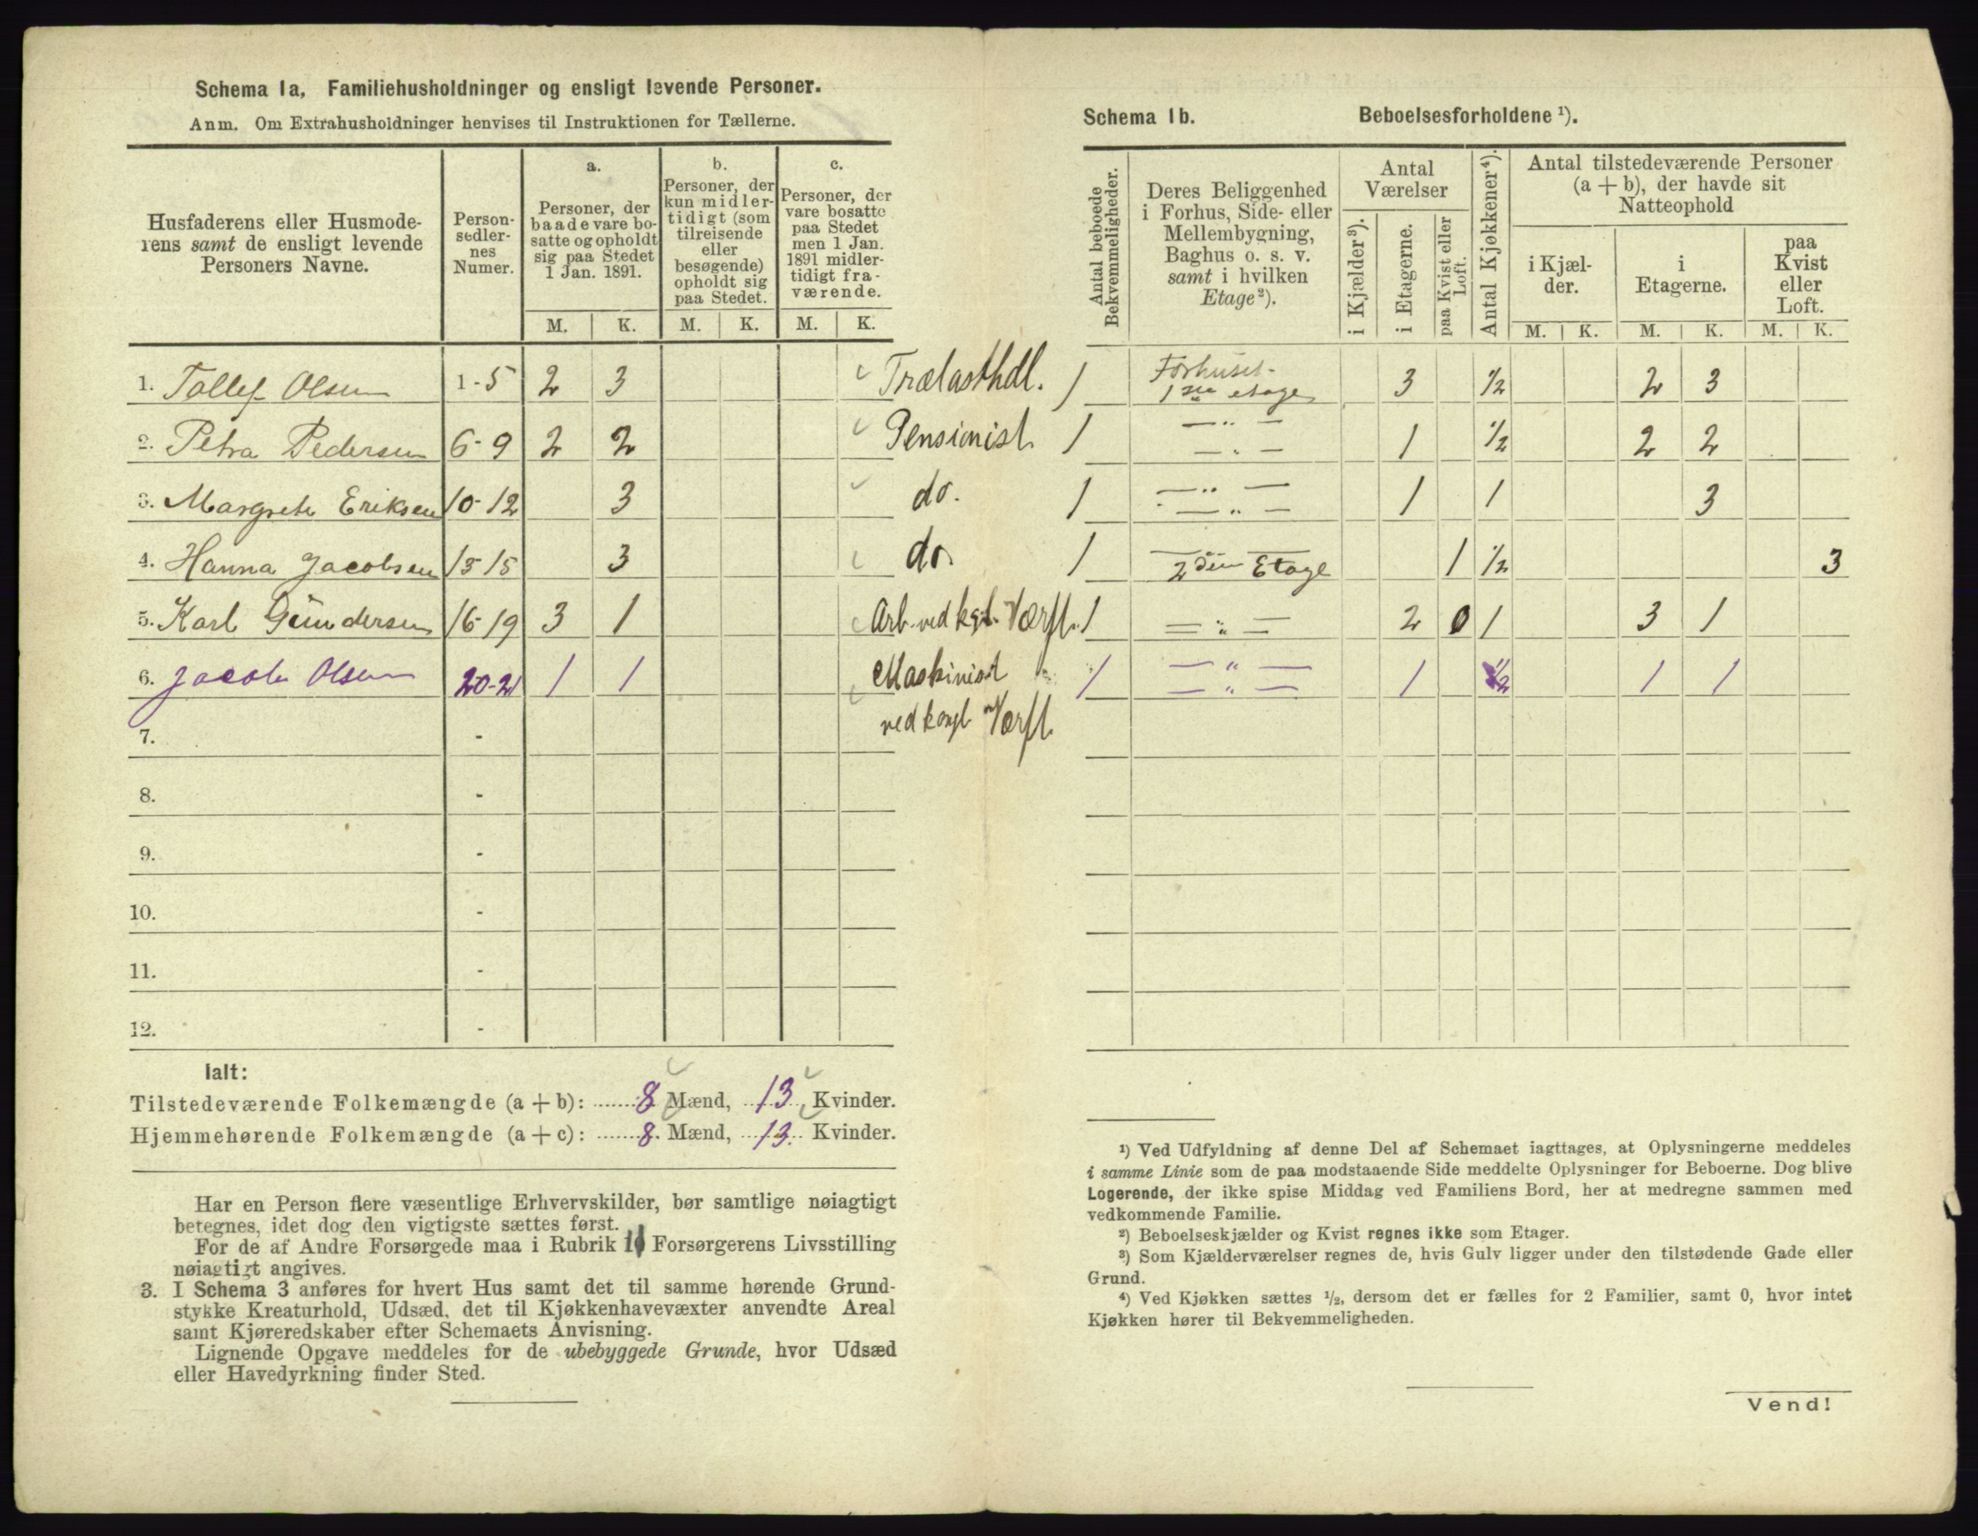 Schema 1a. Familiehusholdninger og ensligt levende Personer.
Anm. Om Extrahusholdninger henvises til Instruktionen for Tællerne.
Husfaderens eller Husmoderens samt de ensligt levende Personers Navne.
Personsedlernes Numer.
a.
Personer, der baade vare bosatte og opholdt sig paa Stedet 1 Jan. 1891.
b.
Personer, der kun midlertidigt (som tilreisende eller besøgende) opholdt sig paa Stedet.
c.
Personer, der vare bosatte paa Stedet men 1 Jan. 1891 midlertidigt fraværende.
M. K. M. K. M. K.
1. Tollef Olsen 1-5 2 3 Trælasthdl.
2. Petra Pedersen 6-9 2 2 Pensionist
3. Margrete Eriksen 10-12 3 do.
4. Hanna Jacobsen 13-15 3 do
5. Karl Gundersen 16-19 3 1 Arb. ved kgl. Værft.
6. Jacob Olsen 20-21 1 1 Maskinist
ved kongl Værft
7. -
8. -
9. -
10. -
11. -
12. -
Ialt:
Tilstedeværende Folkemængde (a + b): 8 Mænd, 13 Kvinder.
Hjemmehørende Folkemængde (a + c): 8 Mænd, 13 Kvinder.
Har en Person flere væsentlige Erhvervskilder, bør samtlige nøiagtigt
betegnes, idet dog den vigtigste sættes først.
For de af Andre Forsørgede maa i Rubrik 10 Forsørgerens Livsstilling
nøiagtigt angives.
3. I Schema 3 anføres for hvert Hus samt det til samme hørende Grund-
stykke Kreaturhold, Udsæd, det til Kjøkkenhavevæxter anvendte Areal
samt Kjøreredskaber efter Schemaets Anvisning.
Lignende Opgave meddeles for de ubebyggede Grunde, hvor Udsæd
eller Havedyrkning finder Sted.
Schema 1b. Beboelsesforholdene ¹).
Antal beboede Bekvemmeligheder.
Deres Beliggenhed i Forhus, Side- eller Mellembygning, Baghus o. s. v. samt i hvilken Etage²).
Antal Værelser
i Kjælder³).
i Etagerne.
paa Kvist eller Loft.
Antal Kjøkkener⁴).
Antal tilstedeværende Personer (a + b), der havde sit Natteophold
i Kjælder.
i Etagerne.
paa Kvist eller Loft.
M. K. M. K. M. K.
1 Forhuset 1ste etage 3 ½ 2 3
1 — " — — " — 1 ½ 2 2
1 — " — — " — 1 1 3
1 — " — 2den Etage 1 ½ 3
1 — " — 2 0 1 3 1
1 — " — — " — 1 ½ 1 1
¹) Ved Udfyldning af denne Del af Schemaet iagttages, at Oplysningerne meddeles
i samme Linie som de paa modstaaende Side meddelte Oplysninger for Beboerne. Dog blive
Logerende, der ikke spise Middag ved Familiens Bord, her at medregne sammen med
vedkommende Familie.
²) Beboelseskjælder og Kvist regnes ikke som Etager.
³) Som Kjælderværelser regnes de, hvis Gulv ligger under den tilstødende Gade eller
Grund.
⁴) Ved Kjøkken sættes ½, dersom det er fælles for 2 Familier, samt 0, hvor intet
Kjøkken hører til Bekvemmeligheden.
Vend!